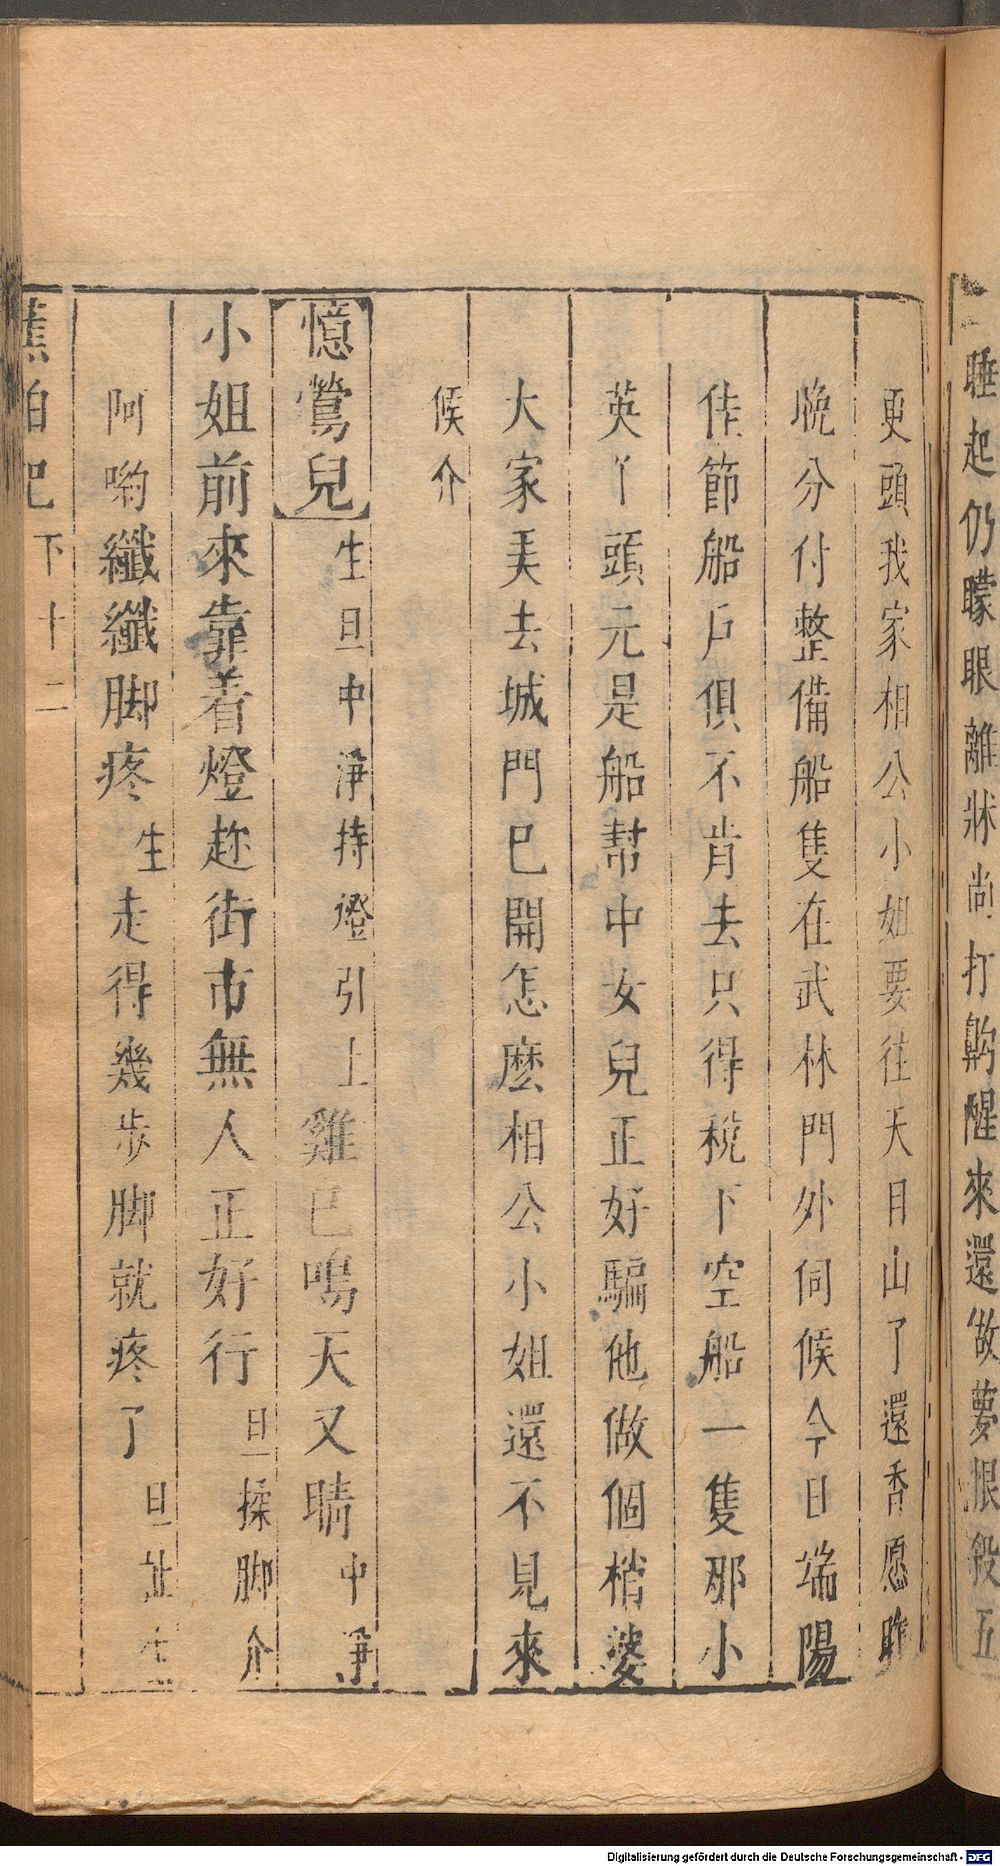 睡起仍矇眼離牀尚打齁醒來還做夢恨殺五
更頭我家相公小姐要往天目山了還香愿昨
晚分付整備船隻在武林門外伺候今日端陽
佳節船戶俱不肯去只得稅下空船一隻那小
英丫頭元是船幫中女兒正好騙他做個梢婆
大家美去城門已開怎麽相公小姐還不見來
候介
【憶鶯兒】生旦中淨持燈引上雞已鳴天又晴中淨
小姐前來靠着燈趂街市無人正好行旦揉脚介
阿喲纖纖脚疼生走得幾步脚就疼了旦扯生
蕉帕記 下 十二
Digitalisierung gefördert durch die Deutsche Forschungsgemeinschaft - DFG